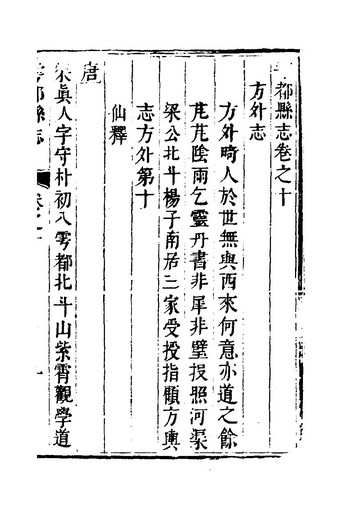 都縣志卷之十
方外志
方外畸人於世無與西來何意亦道之餘
芃芃陰雨乞靈丹書非犀非璧投照河渠
梁公北斗楊子南居三家受授指顧方輿
志方外第十
仙釋
唐
眞人字守朴初入雩都北斗山紫霄觀學道
都縣志